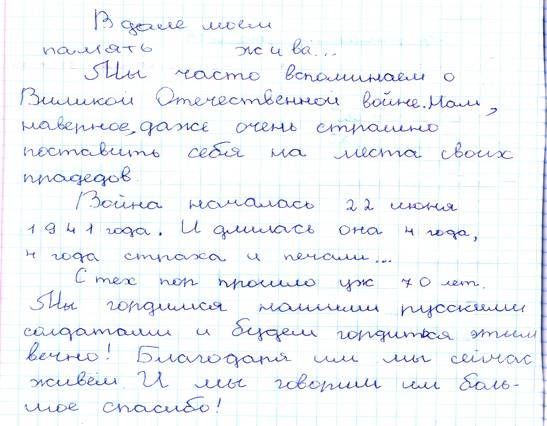 В дале моем
память жива...
Мы часто вспоминаем о
Виликой Отечественной войне. Нам,
наверное, даже очень страшно
поставить себя на места своих
прадедов
Война началась 22 июня
1941 года. И длилась она 4 года,
4 года страха и печали...
С тех пор прошло уж 70 лет.
Мы гордимся нашими русскими
солдатами и будем гордиться этим
вечно! Благодаря им мы сейчас
живём. И мы говорим им боль-
шое спасибо!